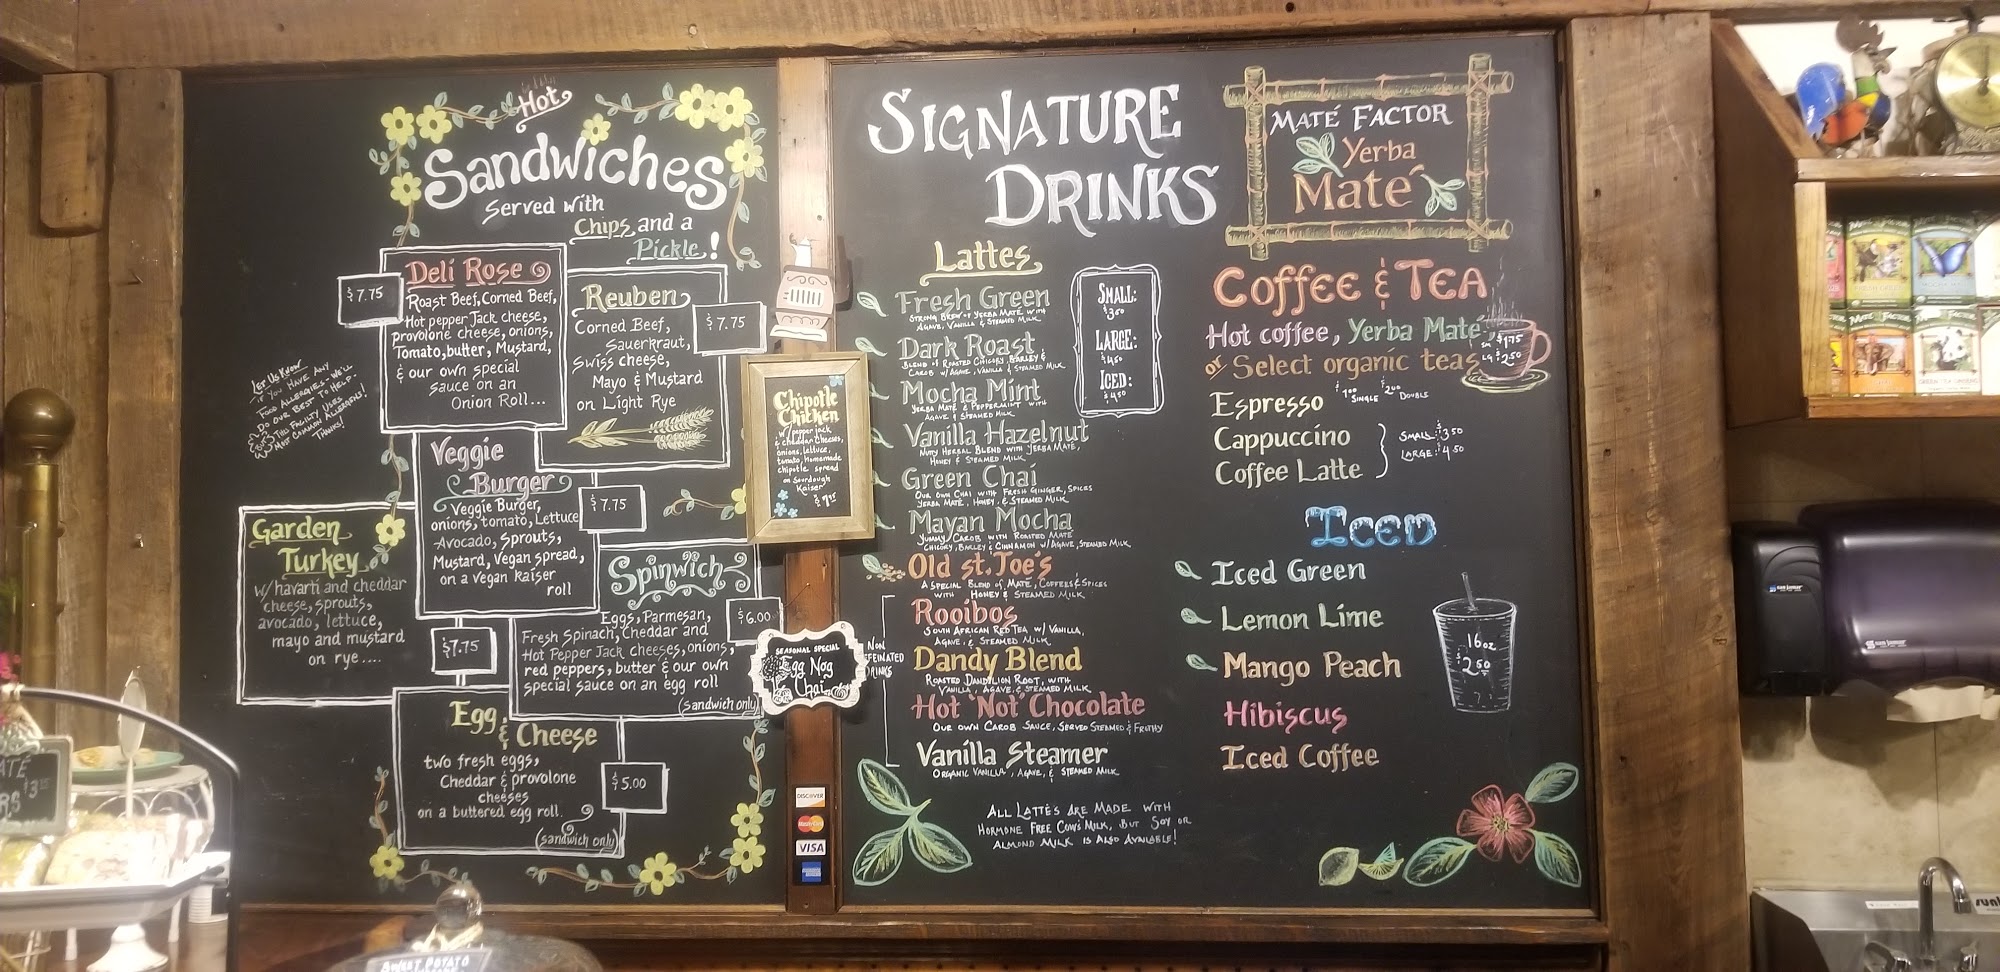 Hot
Sandwiches
Served with
Chips and a
Pickle!
Deli Rose
$7.75
Roast Beef, Corned Beef,
Hot pepper Jack cheese,
provolone cheese, onions,
Tomato, butter, Mustard,
& our own special
sauce on an
Onion Roll...
Reuben
$7.75
Corned Beef,
Sauerkraut,
Swiss cheese,
Mayo & Mustard
on Light Rye
Let Us Know
if You Have Any
Food Allergies - We'll
Do Our Best To Help -
This Facility Uses
Most Common Allergens!
Thanks!
Veggie
Burger
$7.75
Veggie Burger,
onions, tomato, Lettuce
Avocado, Sprouts,
Mustard, Vegan spread,
on a Vegan kaiser
roll
Garden
Turkey
w/ havarti and cheddar
cheese, sprouts,
avocado, lettuce,
mayo and mustard
on rye....
$7.75
Spinwich
$6.00
Eggs, Parmesan,
Fresh Spinach, Cheddar and
Hot Pepper Jack cheeses, onions,
red peppers, butter & our own
special sauce on an egg roll
(sandwich only)
Egg
& Cheese
two fresh eggs,
Cheddar & provolone
cheeses
on a buttered egg roll.
(sandwich only)
$5.00
Chipotle
Chicken
w/ pepper jack
& cheddar cheeses,
onions, lettuce,
tomato, homemade
chipotle spread
on Sourdough
Kaiser
SEASONAL SPECIAL
Egg Nog
Chai
DISCOVER
MasterCard
VISA
SIGNATURE
DRINKS
Lattes
Fresh Green
STRONG BREW OF YERBA MATE WITH
AGAVE, VANILLA & STEAMED MILK
Dark Roast
BLEND OF ROASTED CHICORY, BARLEY &
CAROB W/ AGAVE, VANILLA & STEAMED MILK
Mocha Mint
YERBA MATE & PEPPERMINT WITH
AGAVE & STEAMED MILK
Vanilla Hazelnut
NUTTY HERBAL BLEND WITH YERBA MATE,
HONEY & STEAMED MILK
Green Chai
OUR OWN CHAI WITH FRESH GINGER, SPICES
YERBA MATE, HONEY, & STEAMED MILK
Mayan Mocha
YUMMY CAROB WITH ROASTED MATE
CHICORY, BARLEY & CINNAMON W/ AGAVE, STEAMED MILK
Old St. Joe's
A SPECIAL BLEND OF MATE, COFFEES & SPICES
WITH HONEY & STEAMED MILK
NON
DRINKS
Rooibos
SOUTH AFRICAN RED TEA W/ VANILLA,
AGAVE, & STEAMED MILK
Dandy Blend
ROASTED DANDELION ROOT, WITH
VANILLA, AGAVE, & STEAMED MILK
Hot 'Not' Chocolate
OUR OWN CAROB SAUCE, SERVED STEAMED & FROTHY
Vanilla Steamer
ORGANIC VANILLA, AGAVE, & STEAMED MILK
SMALL:
$3.50
LARGE:
$4.50
ICED:
$4.50
ALL LATTÉS ARE MADE WITH
HORMONE FREE COW'S MILK, BUT SOY OR
ALMOND MILK IS ALSO AVAILABLE!
MATÉ FACTOR
Yerba
Maté
COFFEE & TEA
Hot coffee, Yerba Maté
or Select organic teas
SM $1.75
LG $2.50
Espresso
SINGLE
DOUBLE
Cappuccino
Coffee Latte
SMALL: $3.50
LARGE: $4.50
ICED
Iced Green
Lemon Lime
Mango Peach
Hibiscus
Iced Coffee
16oz
$2.50
MATÉ FACTOR
MATÉ FACTOR
SWEET POTATO